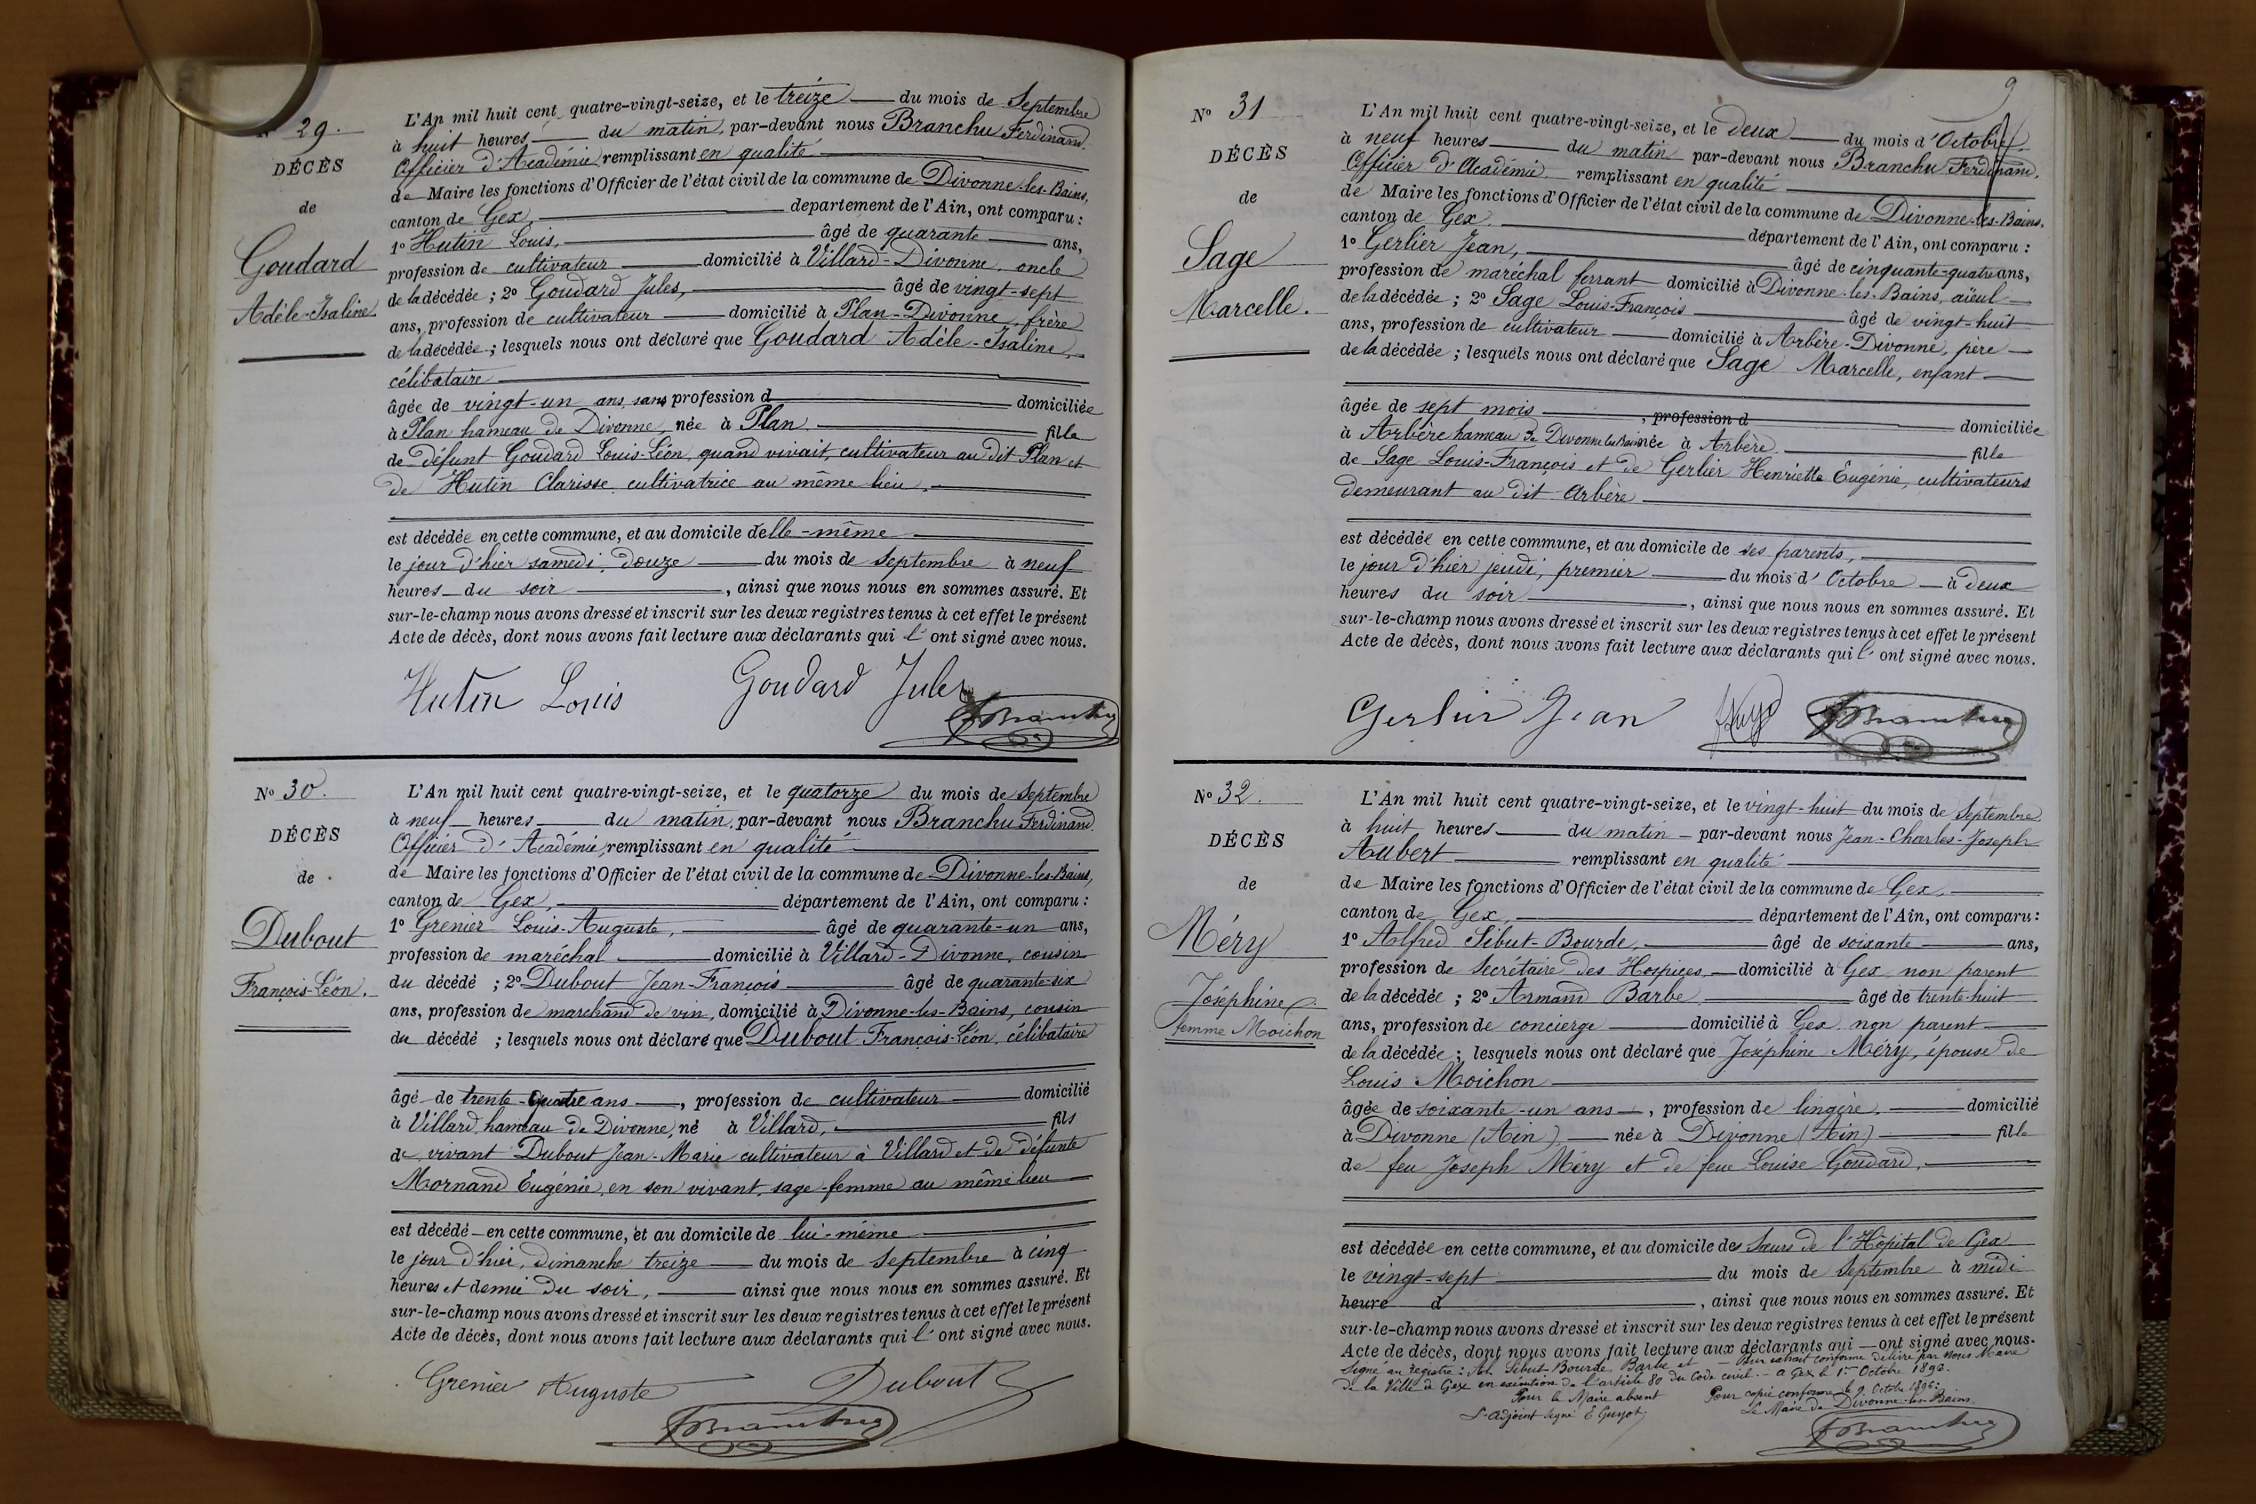 N° 29.
DÉCÈS
de
Goudard
Adèle-Isaline.
L'An mil huit cent quatre-vingt-seize, et le treize du mois de Septembre
à huit heures du matin, par-devant nous Branchu Ferdinand.
Officier d'Académie, remplissant en qualité
de Maire les fonctions d'Officier de l'état civil de la commune de Divonne-les-Bains,
canton de Gex, département de l'Ain, ont comparu :
1° Hutin Louis, âgé de quarante ans,
profession de cultivateur domicilié à Villard-Divonne, oncle
de la décédée ; 2° Goudard Jules, âgé de vingt-sept
ans, profession de cultivateur domicilié à Plan-Divonne, frère
de la décédée ; lesquels nous ont déclaré que Goudard Adèle-Isaline,
célibataire
âgée de vingt-un ans, sans profession d domiciliée
à Plan hameau de Divonne, née à Plan fille
de défunt Goudard Louis-Léon, quand vivait, cultivateur au dit Plan et
de Hutin Clarisse, cultivatrice au même lieu.
est décédée en cette commune, et au domicile d'elle-même
le jour d'hier samedi, douze du mois de Septembre à neuf
heures du soir, ainsi que nous nous en sommes assuré. Et
sur-le-champ nous avons dressé et inscrit sur les deux registres tenus à cet effet le présent
Acte de décès, dont nous avons fait lecture aux déclarants qui l'ont signé avec nous.
Hutin Louis Goudard Jules
FBranchu
N° 30.
DÉCÈS
de
Dubout
François-Léon.
L'An mil huit cent quatre-vingt-seize, et le quatorze du mois de Septembre
à neuf heures du matin, par-devant nous Branchu Ferdinand.
Officier d'Académie, remplissant en qualité
de Maire les fonctions d'Officier de l'état civil de la commune de Divonne-les-Bains,
canton de Gex, département de l'Ain, ont comparu :
1° Grenier Louis-Auguste, âgé de quarante-un ans,
profession de maréchal domicilié à Villard-Divonne, cousin
du décédé ; 2° Dubout Jean-François âgé de quarante-six
ans, profession de marchand de vin, domicilié à Divonne-les-Bains, cousin
du décédé ; lesquels nous ont déclaré que Dubout François-Léon, célibataire
âgé de trente-quatre ans, profession de cultivateur domicilié
à Villard, hameau de Divonne, né à Villard, fils
de vivant Dubout Jean-Marie cultivateur à Villard et de défunte
Mornand Eugénie, en son vivant, sage-femme au même lieu
est décédé en cette commune, et au domicile de lui-même
le jour d'hier, dimanche treize du mois de Septembre à cinq
heures et demie du soir, ainsi que nous nous en sommes assuré. Et
sur-le-champ nous avons dressé et inscrit sur les deux registres tenus à cet effet le présent
Acte de décès, dont nous avons fait lecture aux déclarants qui l'ont signé avec nous.
Grenier Auguste Dubout
FBranchu
9
N° 31
DÉCÈS
de
Sage
Marcelle.
L'An mil huit cent quatre-vingt-seize, et le deux du mois d'Octobre.
à neuf heures du matin par-devant nous Branchu Ferdinand.
Officier d'Académie remplissant en qualité
de Maire les fonctions d'Officier de l'état civil de la commune de Divonne-les-Bains.
canton de Gex. département de l'Ain, ont comparu :
1° Gerlier Jean, âgé de cinquante-quatre ans,
profession de maréchal ferrant domicilié à Divonne-les-Bains, aïeul
de la décédée ; 2° Sage Louis-François âgé de vingt-huit
ans, profession de cultivateur domicilié à Arbère-Divonne, père
de la décédée ; lesquels nous ont déclaré que Sage Marcelle, enfant
âgée de sept mois, profession d domiciliée
à Arbère hameau de Divonne les Bains née à Arbère fille
de Sage Louis-François et de Gerlier Henriette Eugénie, cultivateurs
demeurant au dit Arbère
est décédée en cette commune, et au domicile de ses parents,
le jour d'hier jeudi, premier du mois d'Octobre à deux
heures du soir, ainsi que nous nous en sommes assuré. Et
sur-le-champ nous avons dressé et inscrit sur les deux registres tenus à cet effet le présent
Acte de décès, dont nous avons fait lecture aux déclarants qui l'ont signé avec nous.
Gerlier Jean FBranchu
N° 32.
DÉCÈS
de
Méry
Joséphine
femme Moichon
L'An mil huit cent quatre-vingt-seize, et le vingt-huit du mois de Septembre
à huit heures du matin par-devant nous Jean-Charles-Joseph
Aubert remplissant en qualité
de Maire les fonctions d'Officier de l'état civil de la commune de Gex.
canton de Gex, département de l'Ain, ont comparu :
1° Alfred Sibut-Bourde, âgé de soixante ans,
profession de Secrétaire des Hospices, domicilié à Gex non parent
de la décédée ; 2° Armand Barbe âgé de trente-huit
ans, profession de concierge domicilié à Gex non parent
de la décédée ; lesquels nous ont déclaré que Joséphine Méry, épouse de
Louis Moichon
âgée de soixante-un ans, profession de lingère. domicilié
à Divonne (Ain), née à Divonne (Ain) fille
de feu Joseph Méry et de feue Louise Goudard,
est décédée en cette commune, et au domicile des Sœurs de l'Hôpital de Gex
le vingt-sept du mois de Septembre à midi
heure d, ainsi que nous nous en sommes assuré. Et
sur-le-champ nous avons dressé et inscrit sur les deux registres tenus à cet effet le présent
Acte de décès, dont nous avons fait lecture aux déclarants qui ont signé avec nous.
Signé au registre : Sibut-Bourde Barbe et Pour extrait conforme délivré par nous Maire
de la Ville de Gex en exécution de l'article 80 du Code civil. à Gex le 1er Octobre 1896.
Pour le Maire absent Pour copie conforme le 9 Octobre 1896.
L'adjoint signé E Guyot Le Maire de Divonne-les-Bains.
FBranchu